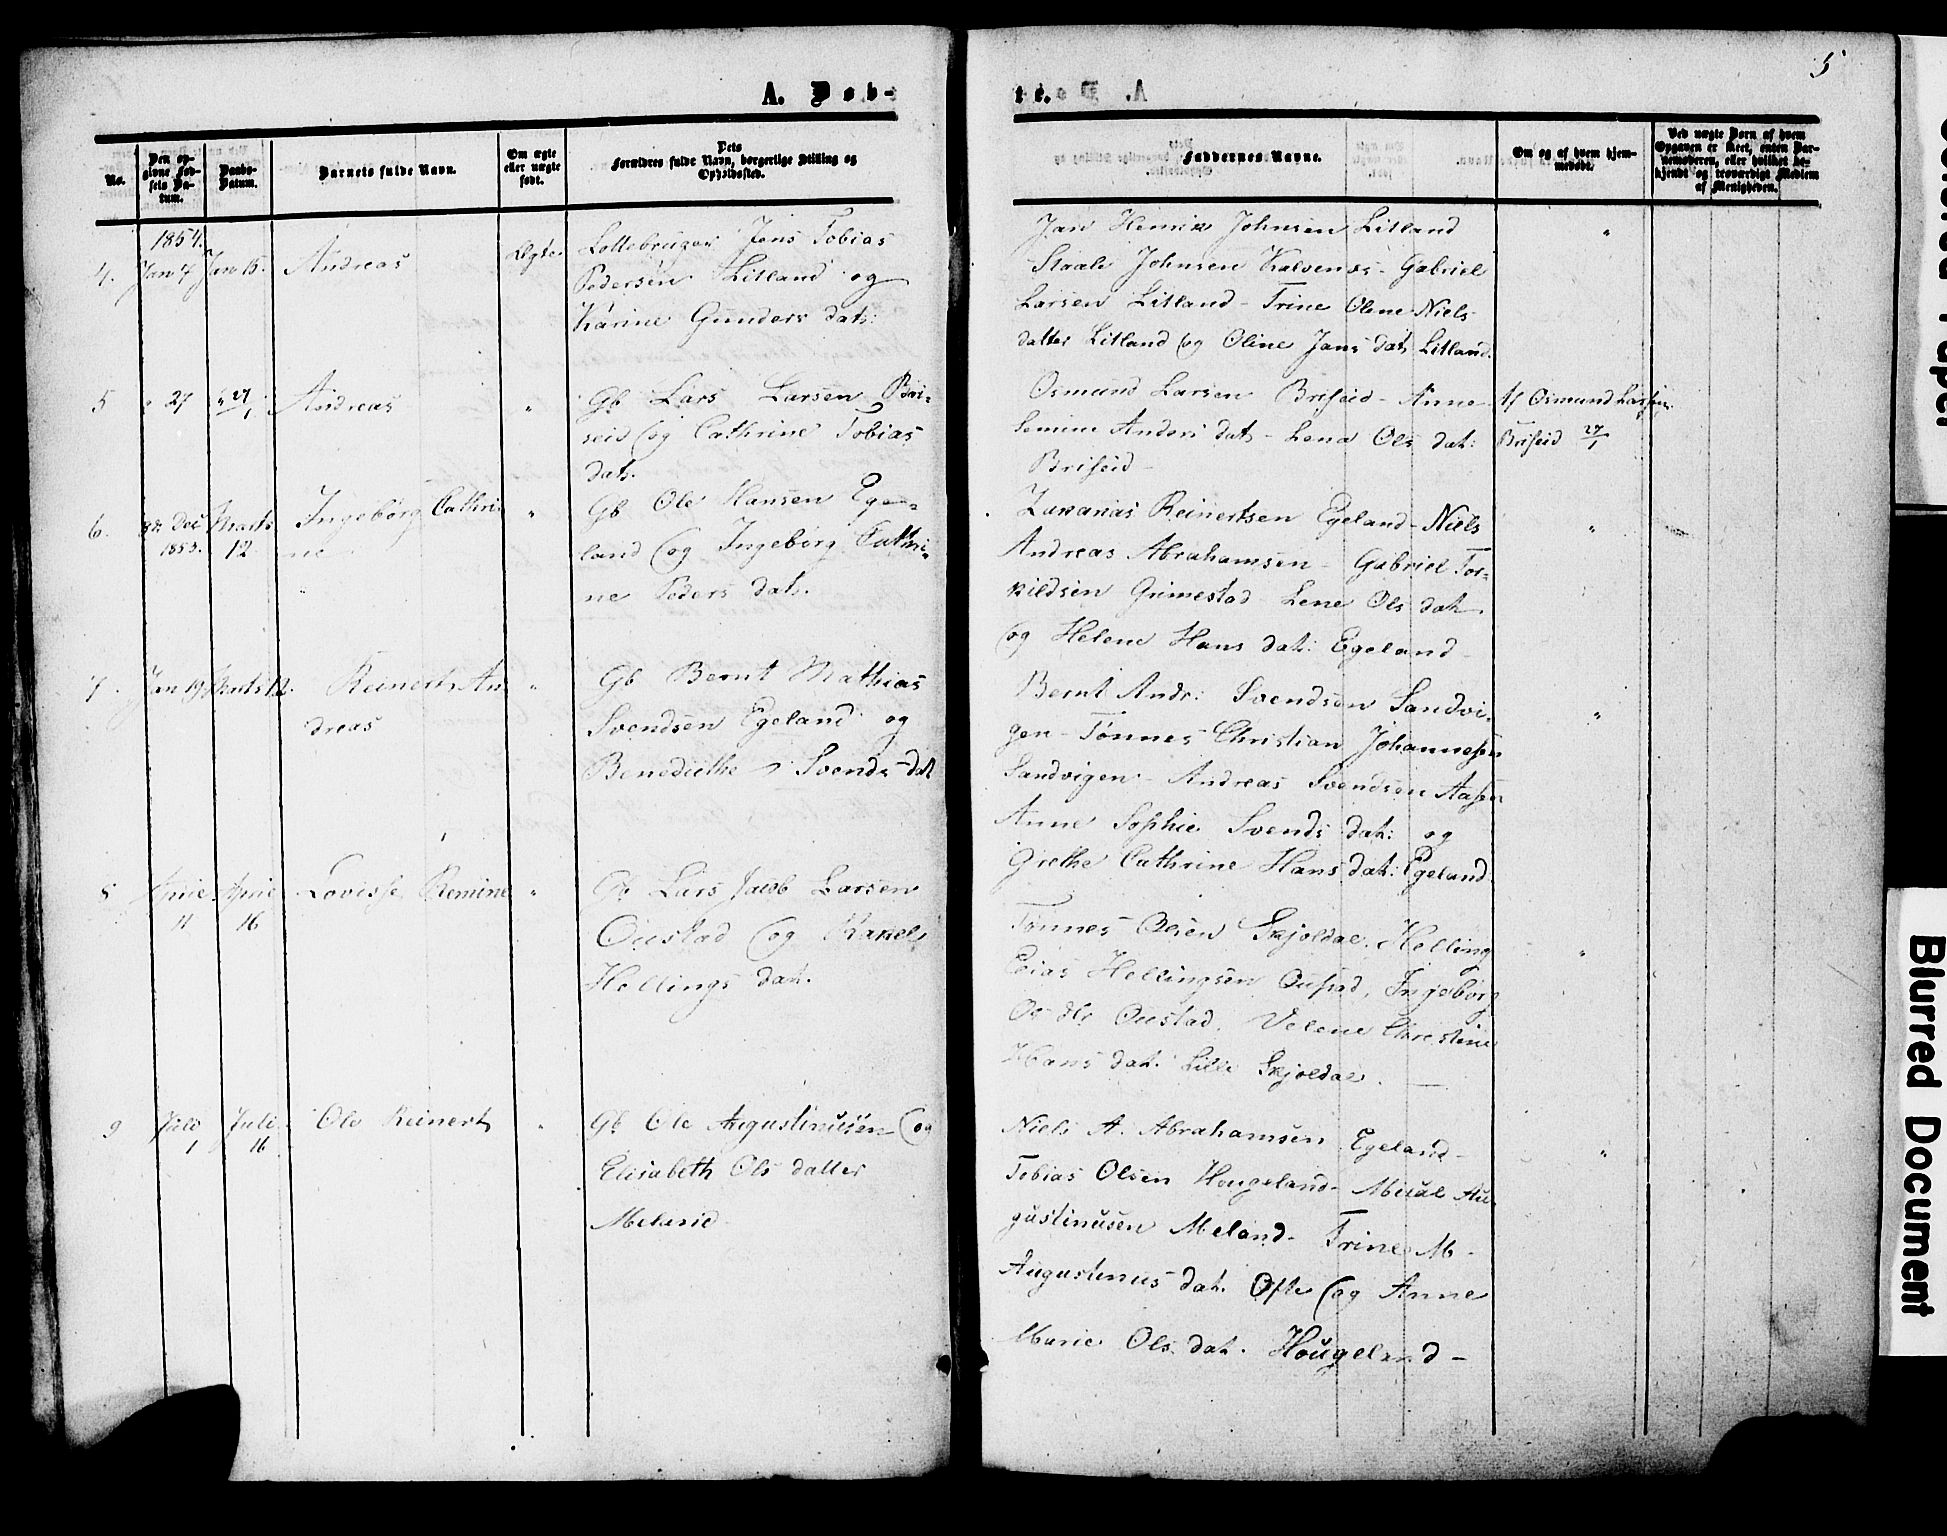 5
A. Døb-
te.
No.
Den op-
givne Fød-
sels Da-
tum.
Daabs-
Datum.
Barnets fulde Navn.
Om ægte
eller uægte
født.
Dets
Forældres fulde Navn, borgerlige Stilling og
Opholdssted.
Faddernes Navne.
Om og af hvem hjem-
medøbt.
Ved uægte Børn af hvem
Opgaven er skeet, enten Bar-
nemoderen, eller hvilket be-
kjendt og troværdigt Medlem
af Menigheden.
1854.
4. Jan 4 Jan 15. Andreas Ægte
Jens Tobias
Pedersen Litland og
Karine Gunders dat:
Jan Henrik Johnsen Litland "
Staale Johnsen Gabriel
Larsen Litland - Trine Olene Niels
datter Litland og Oline Jans dat. Litland.
5 " 27 " 27/1 Andreas "
Gb Lars Larsen Bri-
seid og Cathrine Tobias
dat.
Osmund Larsen Briseid - Anne
Semine Anders dat - Lena Ols dat:
Briseid -
Af Osmund Larsen
Briseid 27/1
6. Dec Marts
1853. 12 Ingeborg Cathri-
ne "
Gb Ole Hansen Ege-
land og Ingeborg Cathri-
ne Peders dat.
Zakarias Reinertsen Egeland - Niels
Andreas Abrahamsen - Gabriel Tor-
kildsen Grimestad - Lene Ols dat
og Helene Hans dat: Egeland - "
7. Jan 19 Marts 12. Reinert An-
dreas "
Gb Bernt Mathias
Svendsen Egeland og
Benedicthe Svends dat
Bernt Andr: Svendsen Sandvi-
gen - Tønnes Christian Johannesen
Sandvigen - Andreas Svendsen Aasen
Anne Sophie Svends dat: og
Grethe Cathrine Hans dat: Egeland. "
8 April April Lovisse Remine "
11 16
Gb Lars Jacob Larsen
Oustad og Rakel
Hellings dat.
Tønnes Olsen Skjoldal. Helling
Elias Hellingsen Oustad, Ingeborg
Oustad. Velene Christine
Hans dat. Lille Skjoldal. - "
9 Juli Juli Ole Reinert "
1 16
Gb Ole Augustinusen og
Elisabeth Ols datter
Meland
Niels A. Abrahamsen Egeland -
Tobias Olsen Hougeland - Mikal Au-
gustinusen Meland - Trine M -
Augustinus dat. Ofte og Anne
Marie Ols dat. Hougeland - "
Colored Paper
Blurred Document